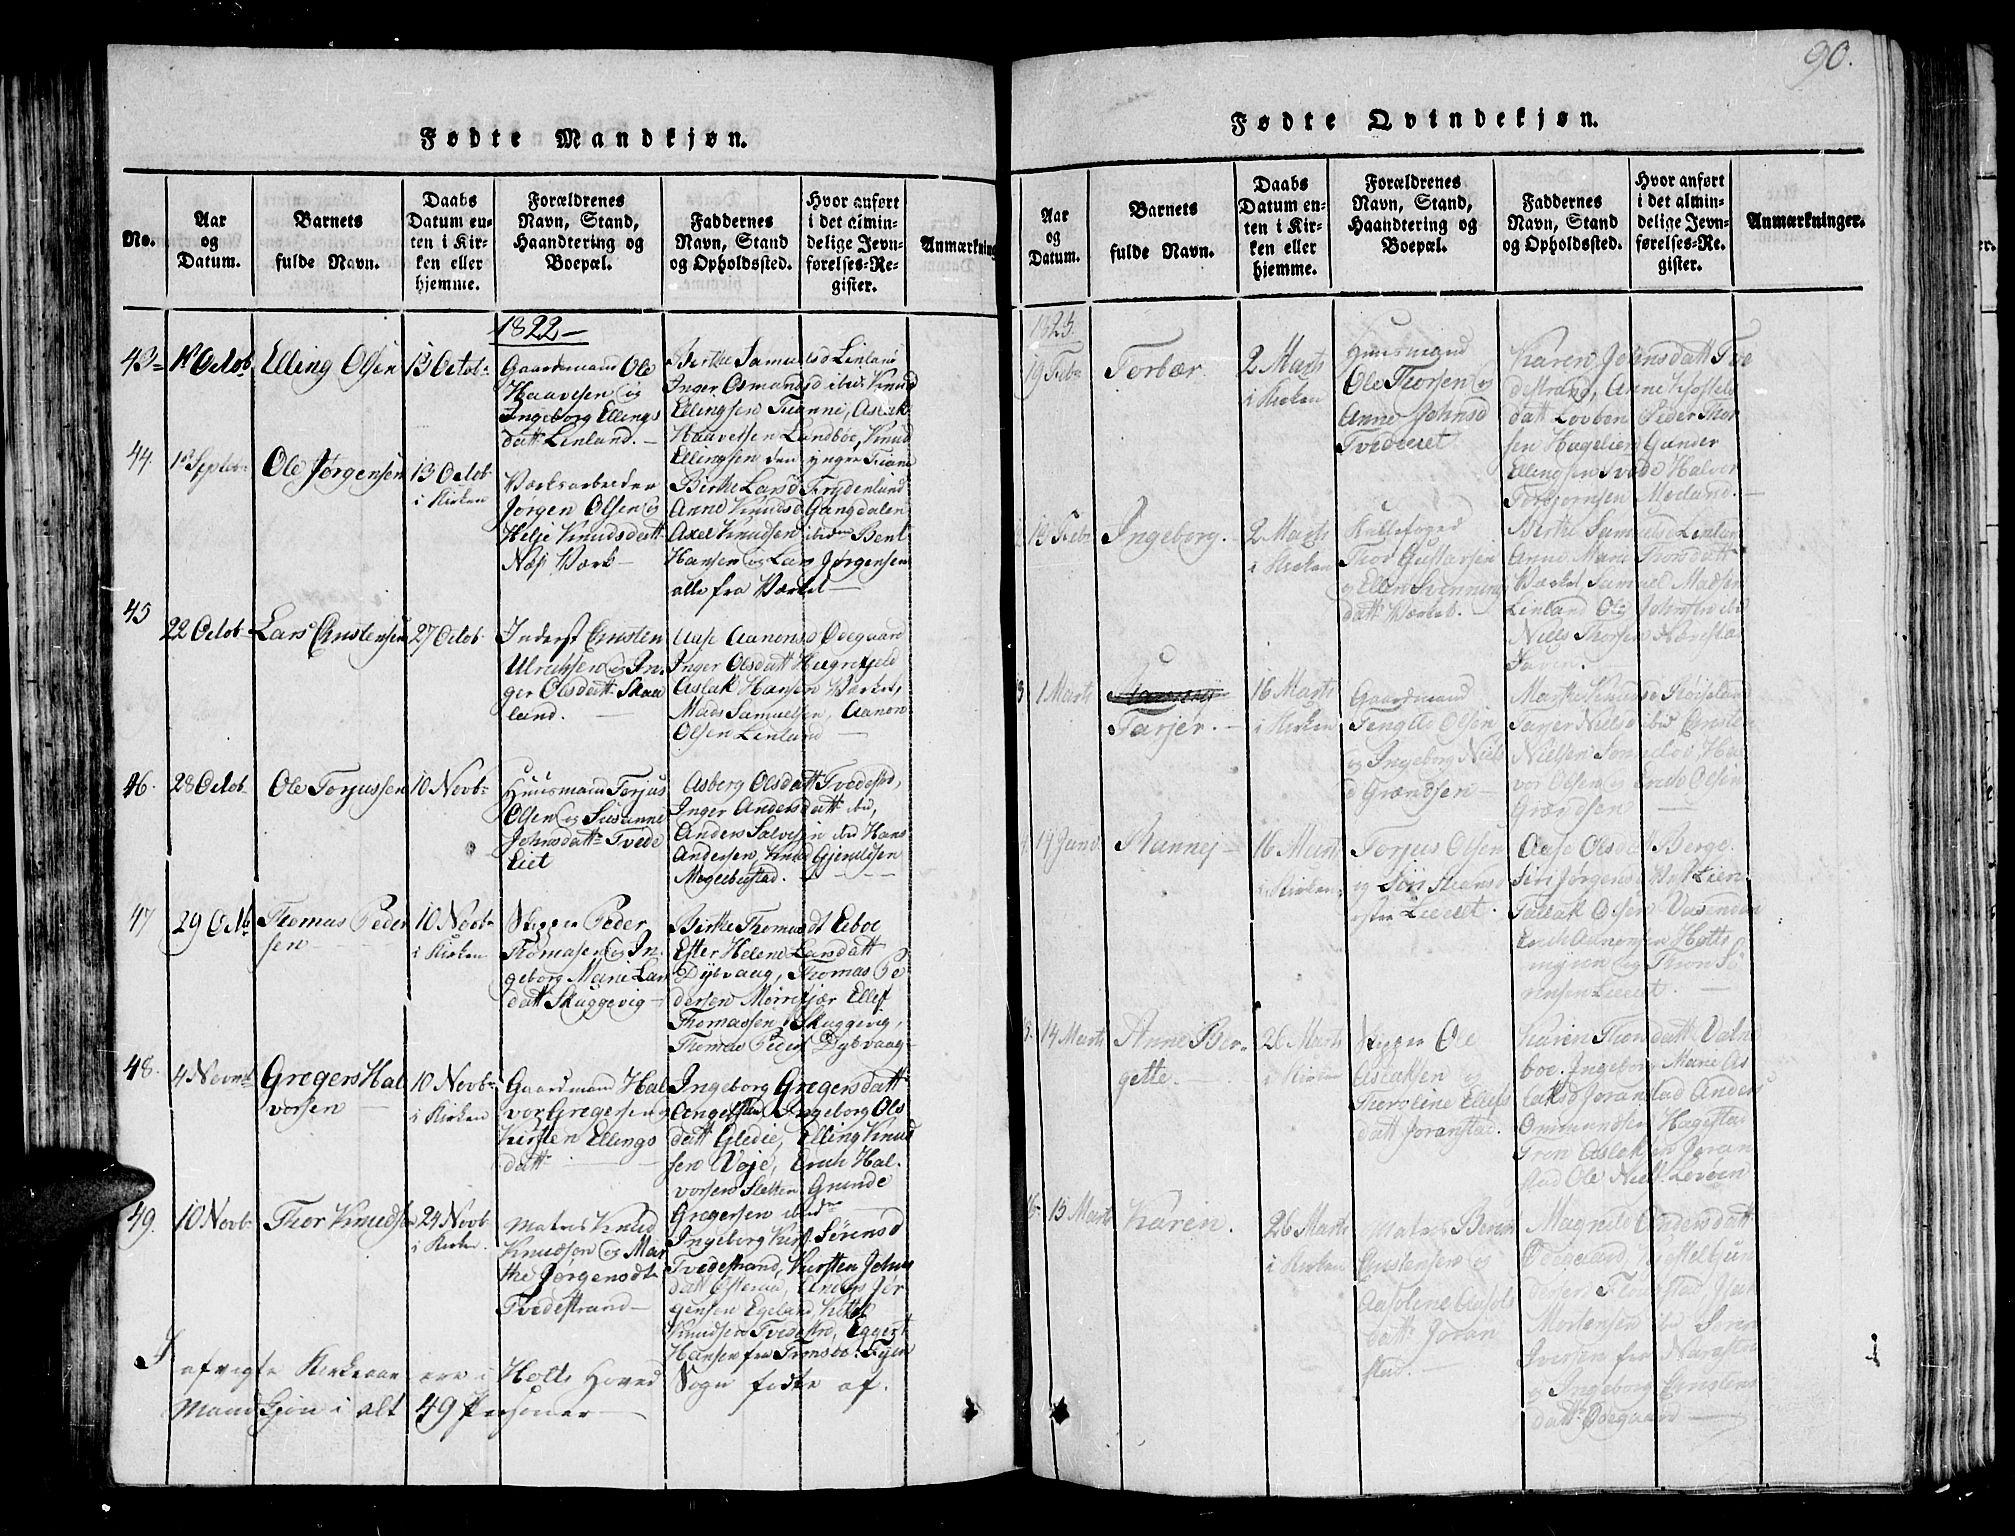 90.
Fødte Mandkjøn.
No.
Aar
og
Datum.
Barnets
fulde Navn.
Daabs
Datum en-
ten i Kir-
ken eller
hjemme.
Forældrenes
Navn, Stand,
Haandtering og
Boepæl.
Faddernes
Navn, Stand
og Opholdssted.
Hvor anført
i det almin-
delige Jevn-
førelses-Re-
gister.
Anmærkning
1822
43
1st Octob
Elling Olsen
13 Octob
Gaardmand Ole
Haavesen og
Ingeborg Ellings
datt Linland.
Birthe Samuelsd Linland
Inger Osmundsd ibid Knud
Ellingsen Fianne, Aslak
Haavessen Landbøe, Knud
Ellingsen den yngre Fiane
44.
Ole Jørgensen
13 Octob
i Kirken
Værksarbeider
Jørgen Olsen og
Helje Knudsdatt
Næs Værk
Birthe Larsd Frydenlund
Anne Knudsd Gangdalen
Axel Knudsen ibid Bent
Hansen og Lars Jørgensen
alle fra Værket
45
22 Octob
Lars Christensen
27 Octob
Inderst Christen
Ulrichsen og In-
ger Olsdatt Skaa
land.
Aase Aanonsd Ødegaard
Inger Olsdatt Hugrefjeld
Aslak Hansen Værket,
Mads Samuelsen, Aanon
Olsen Linland
46.
28 Octob
Ole Torjussen
10 Novb
Huusmand Torjus
Olsen og Susanne
Johnsdatt Tvede
Eiet
Asberg Olsdatt Tvedestrd,
Inger Andersdatt ibd,
Anders Salvesen ibd Hans
Andersen, Knud Gjeruldsen
47
29 Octb
Thomas Peder
sen
10 Novb
i Kirken
Skipper Peder
Thomasen og In-
geborg Marie Lars
datt Skuggevig
Birthe Thomasdt Eiboe
Ester Helene Larsdatt
Dybvaag, Thomas Pe
dersen Morrefjær Ellef
Thomassen Skuggevig,
Thomas Peders Dybvaag
48.
4 Novmb
Gregers Hal
vorsen
10 Novb
i Kirken
Gaardmand Hal
vor Gregersen og
Kirsten Ellings
datt
Ingeborg Gregersdatt
Angelstad Ingeborg Ols
datt Gledie, Elling Knud
sen Voje, Erich Hal-
vorsen Sletten Grunde
Gregersen ibidm
49.
10 Novb
Thor Knudsen
24 Novb
i Kirken.
Matros Knud
Knudsøn og Mar
the Jørgensdt
Tvedestrand
Ingeborg Kirst. Sørensd
Tvedestrand, Kirsten Johns
datt Østeraa, Anders Jør
gensen Egeland Kittel
Knudsen Tvedestrd, Eggert
I
afvigte Kirkeaar ere i Holts Hoved Sogn fødte af
Mand Kjøn i alt 49 Personer
Fødte Qvindekjøn.
Aar
og
Datum.
Barnets
fulde Navn.
Daabs
Datum en-
ten i Kir-
ken eller
hjemme.
Forældrenes
Navn, Stand,
Haandtering og
Boepæl.
Faddernes
Navn, Stand
og Opholdssted.
Hvor anført
i det almin-
delige Jevn-
førelses-Re-
gister.
Anmærkninger.
1823.
19 Feb
Torbær
2 Marts
i Kirken
Huusmand
Ole Thorsen og
Anne Johnsd
Tvedeeiet
Karen Johnsdatt Tve
destrand, Anne Kjostels
datt Løvboe Peder Thor
sen Hagelien Gunder
Ellingsen Tvede Halvor
Torbjørnsen Moland.
Ingeborg.
2 Marts
i Kirken
Thor Gustavsen
og Ellen Svenning
datt Værket.
Birthe Samuelsd Linland
Anne Marie Thorsdatt
Værket Samuel Madsen
Linland Ole Johnsen ibid
Niels Thorsen
3
1 Marts
Tarjer.
16 Marts
i Kirken
Gaardmand
Tengels Olsen
og Ingeborg Niels
d Grændsen
Marthe Knudsd
Nielsen
vor Olsen og Ends Olsen
Grændsen
19 Janu
Rannej
16 Marts
i Kirken
Torjus Olsen
og
Lieeiet.
Aase Olsdatt Berge
Siri Jørgensd Vas Lien
Tallak Olsen Vasenden
Erich Aanonsen Holte
myren og Thor Si
Lieeiet.
5.
14 Marts
Anne Ber-
gette
26 Marts
i Kirken
Skipper Ole
Aslaksen og
Thoroline Elefs
datt Joranstad.
Karen Thorsdatt Valn
boe. Ingeborg Marie As
laksd Joranstad Anders
Ommundsen Hagestad
Tron Aslaksen Joran
stad Ole Niels. Løveen
6.
15 Marts
Karen.
26 Marts
i Kirken
Matros Bernt
Christensen og
Aasoline Aasols
datt Joran
stad.
Magnild Andersdatt
Ødegaard, Kjettel Gun
dersen Flougstad, Jsak
Mortensen ibd Søren
Iversen fra
og Ingeborg Christens
datt Ødegaard